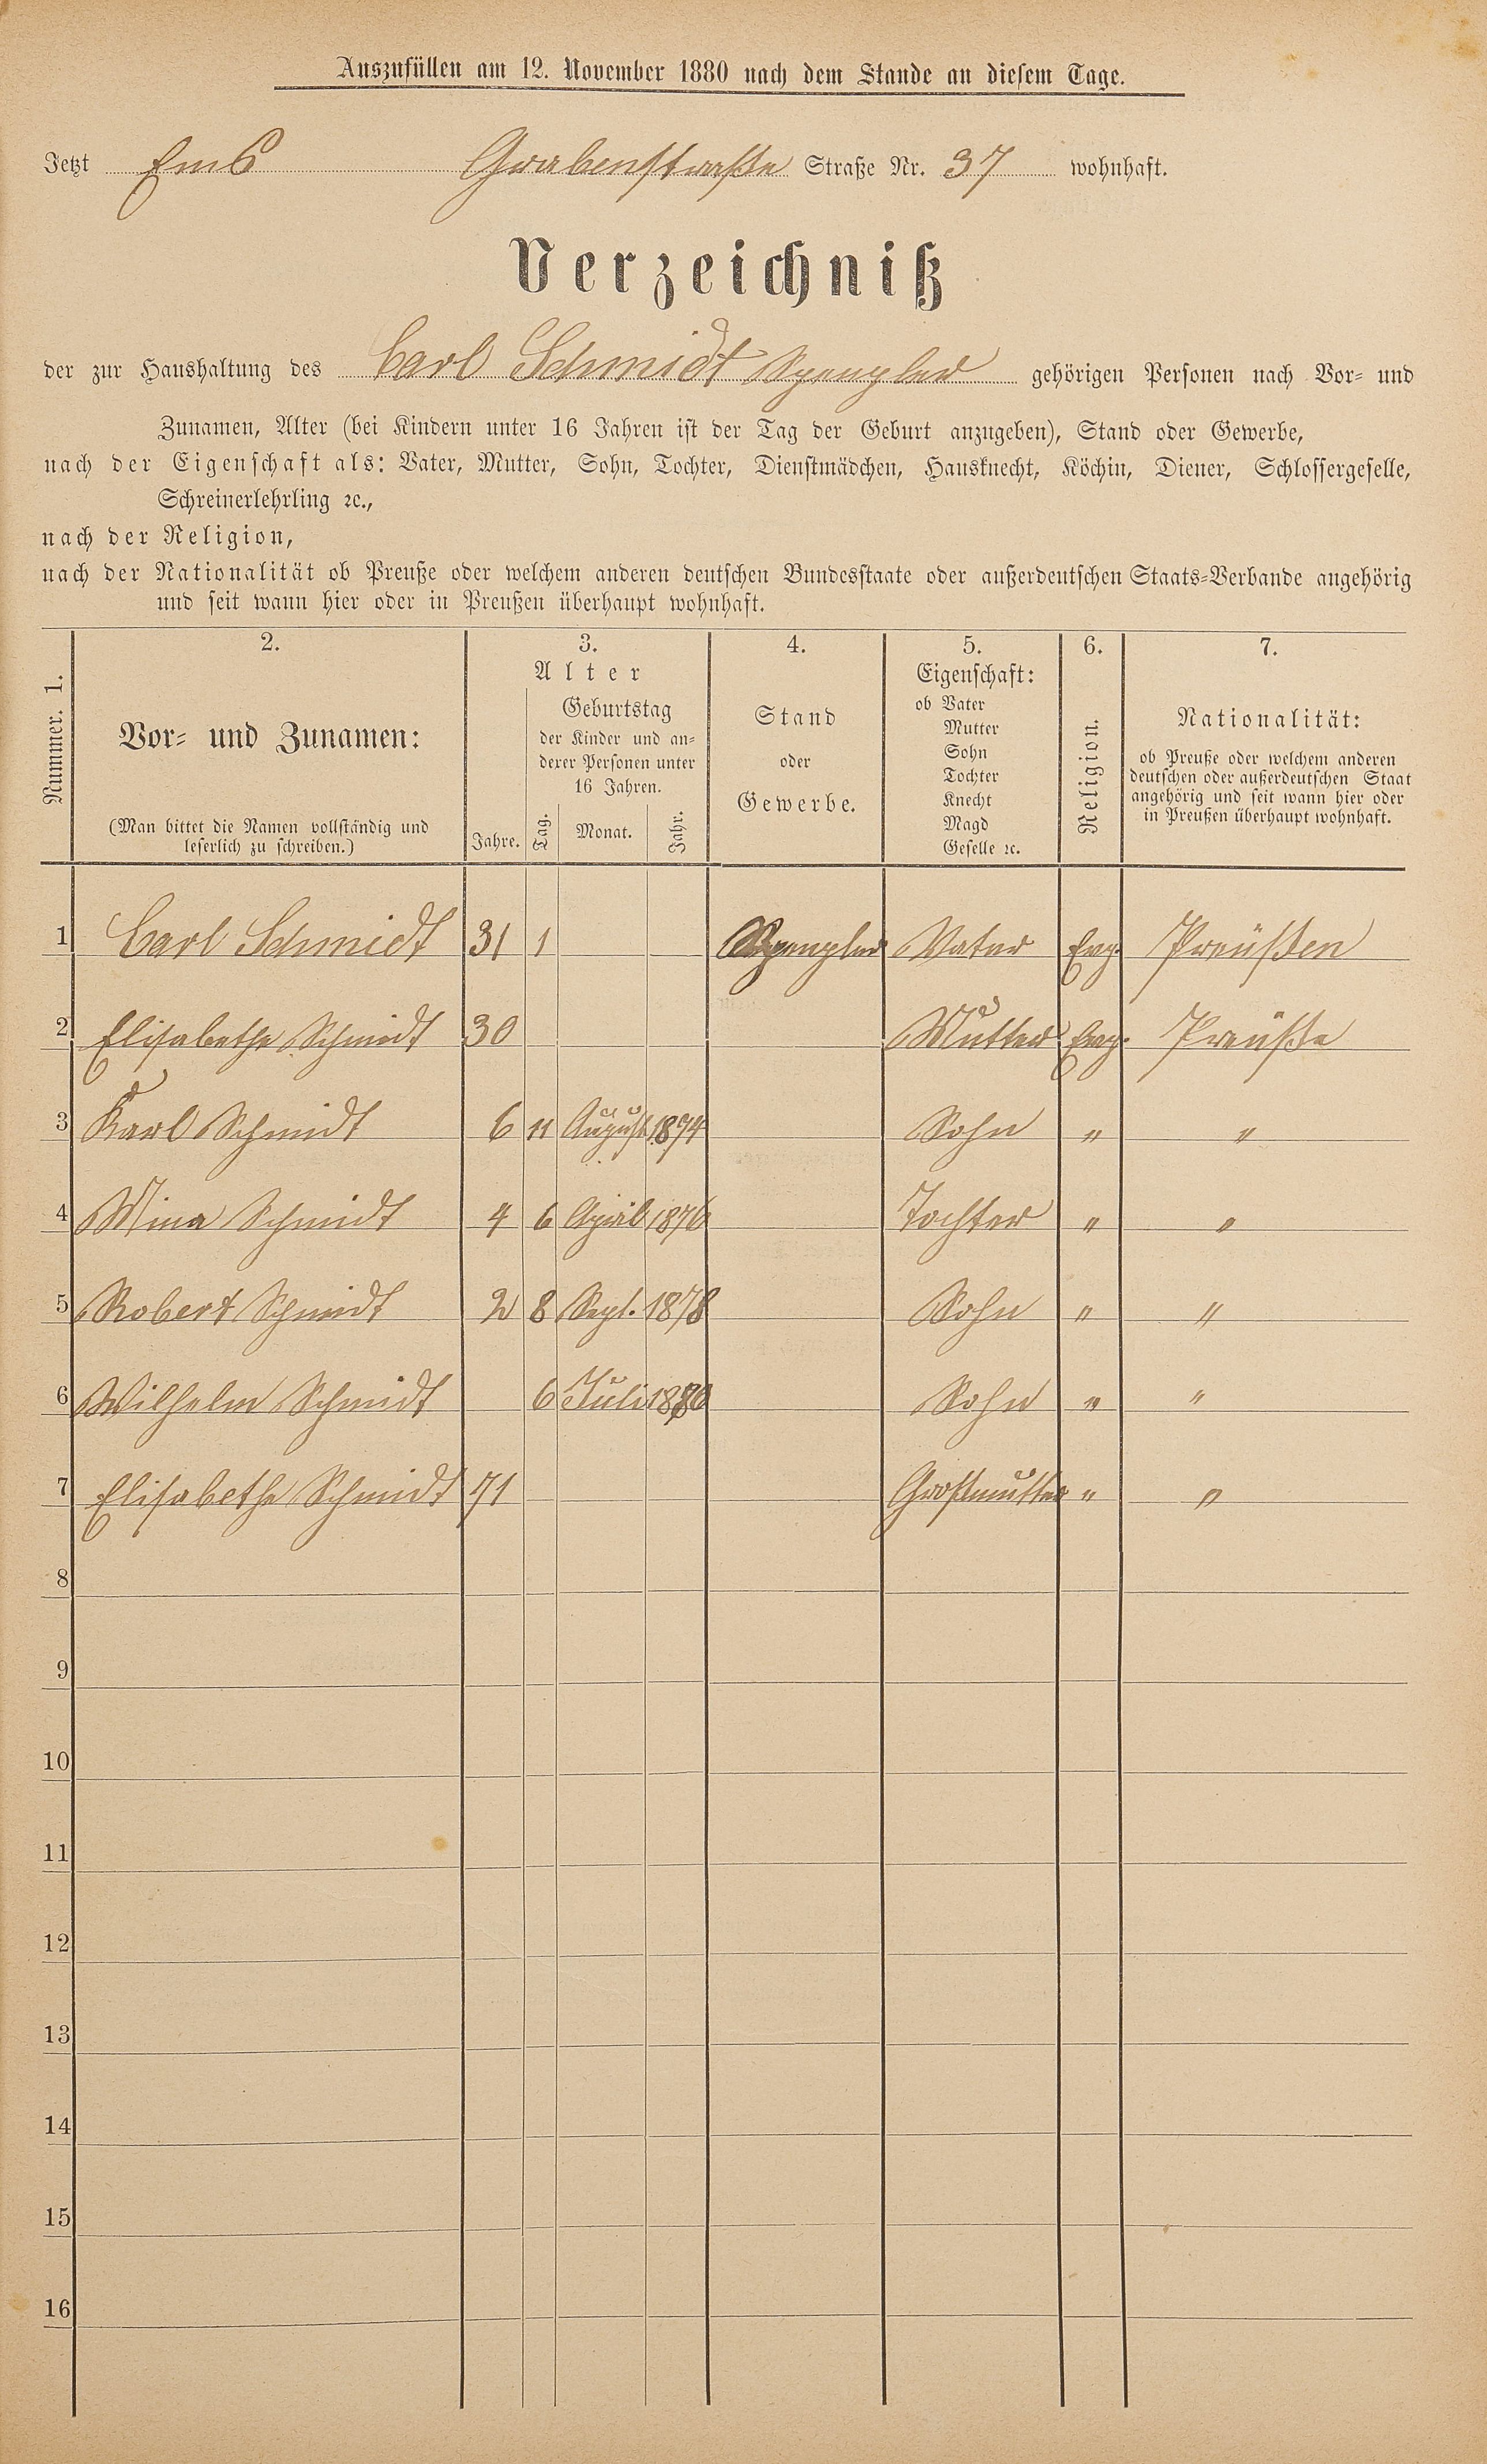 Auszufüllen am 12. November 1880 nach dem Stande an diesem Tage.
Jetzt Ems Grabenstraße Straße Nr. 37 wohnhaft.
Verzeichniß
der zur Haushaltung des Carl Schmidt Spengler gehörigen Personen nach Vor- und
Zunamen, Alter (bei Kindern unter 16 Jahren ist der Tag der Geburt anzugeben), Stand oder Gewerbe,
nach der Eigenschaft als: Vater, Mutter, Sohn, Tochter, Dienstmädchen, Hausknecht, Köchin, Diener, Schlossergeselle,
Schreinerlehrling ꝛc.,
nach der Religion,
nach der Nationalität ob Preuße oder welchem anderen deutschen Bundesstaate oder außerdeutschen Staats-Verbande angehörig
und seit wann hier oder in Preußen überhaupt wohnhaft.
Nummer. 1.
2.
Vor- und Zunamen:
(Man bittet die Namen vollständig und
leserlich zu schreiben.)
3.
Alter
Jahre.
Geburtstag
der Kinder und an-
derer Personen unter
16 Jahren.
Tag. Monat. Jahr.
4.
Stand
oder
Gewerbe.
5.
Eigenschaft:
ob Vater
Mutter
Sohn
Tochter
Knecht
Magd
Geselle ꝛc.
6.
Religion.
7.
Nationalität:
ob Preuße oder welchem anderen
deutschen oder außerdeutschen Staat
angehörig und seit wann hier oder
in Preußen überhaupt wohnhaft.
1 Carl Schmidt 31 1 Spengler Vater Evg. Preußen
2 Elisabethe Schmidt 30 Mutter Evg. Preuße
3 Karl Schmidt 6 11 August 1874 Sohn " "
4 Mina Schmidt 4 6 April 1876 Tochter " "
5 Robert Schmidt 2 8 Sept. 1878 Sohn " "
6 Wilhelm Schmidt 6 Juli 1880 Sohn " "
7 Elisabethe Schmidt 71 Großmutter " "
8
9
10
11
12
13
14
15
16